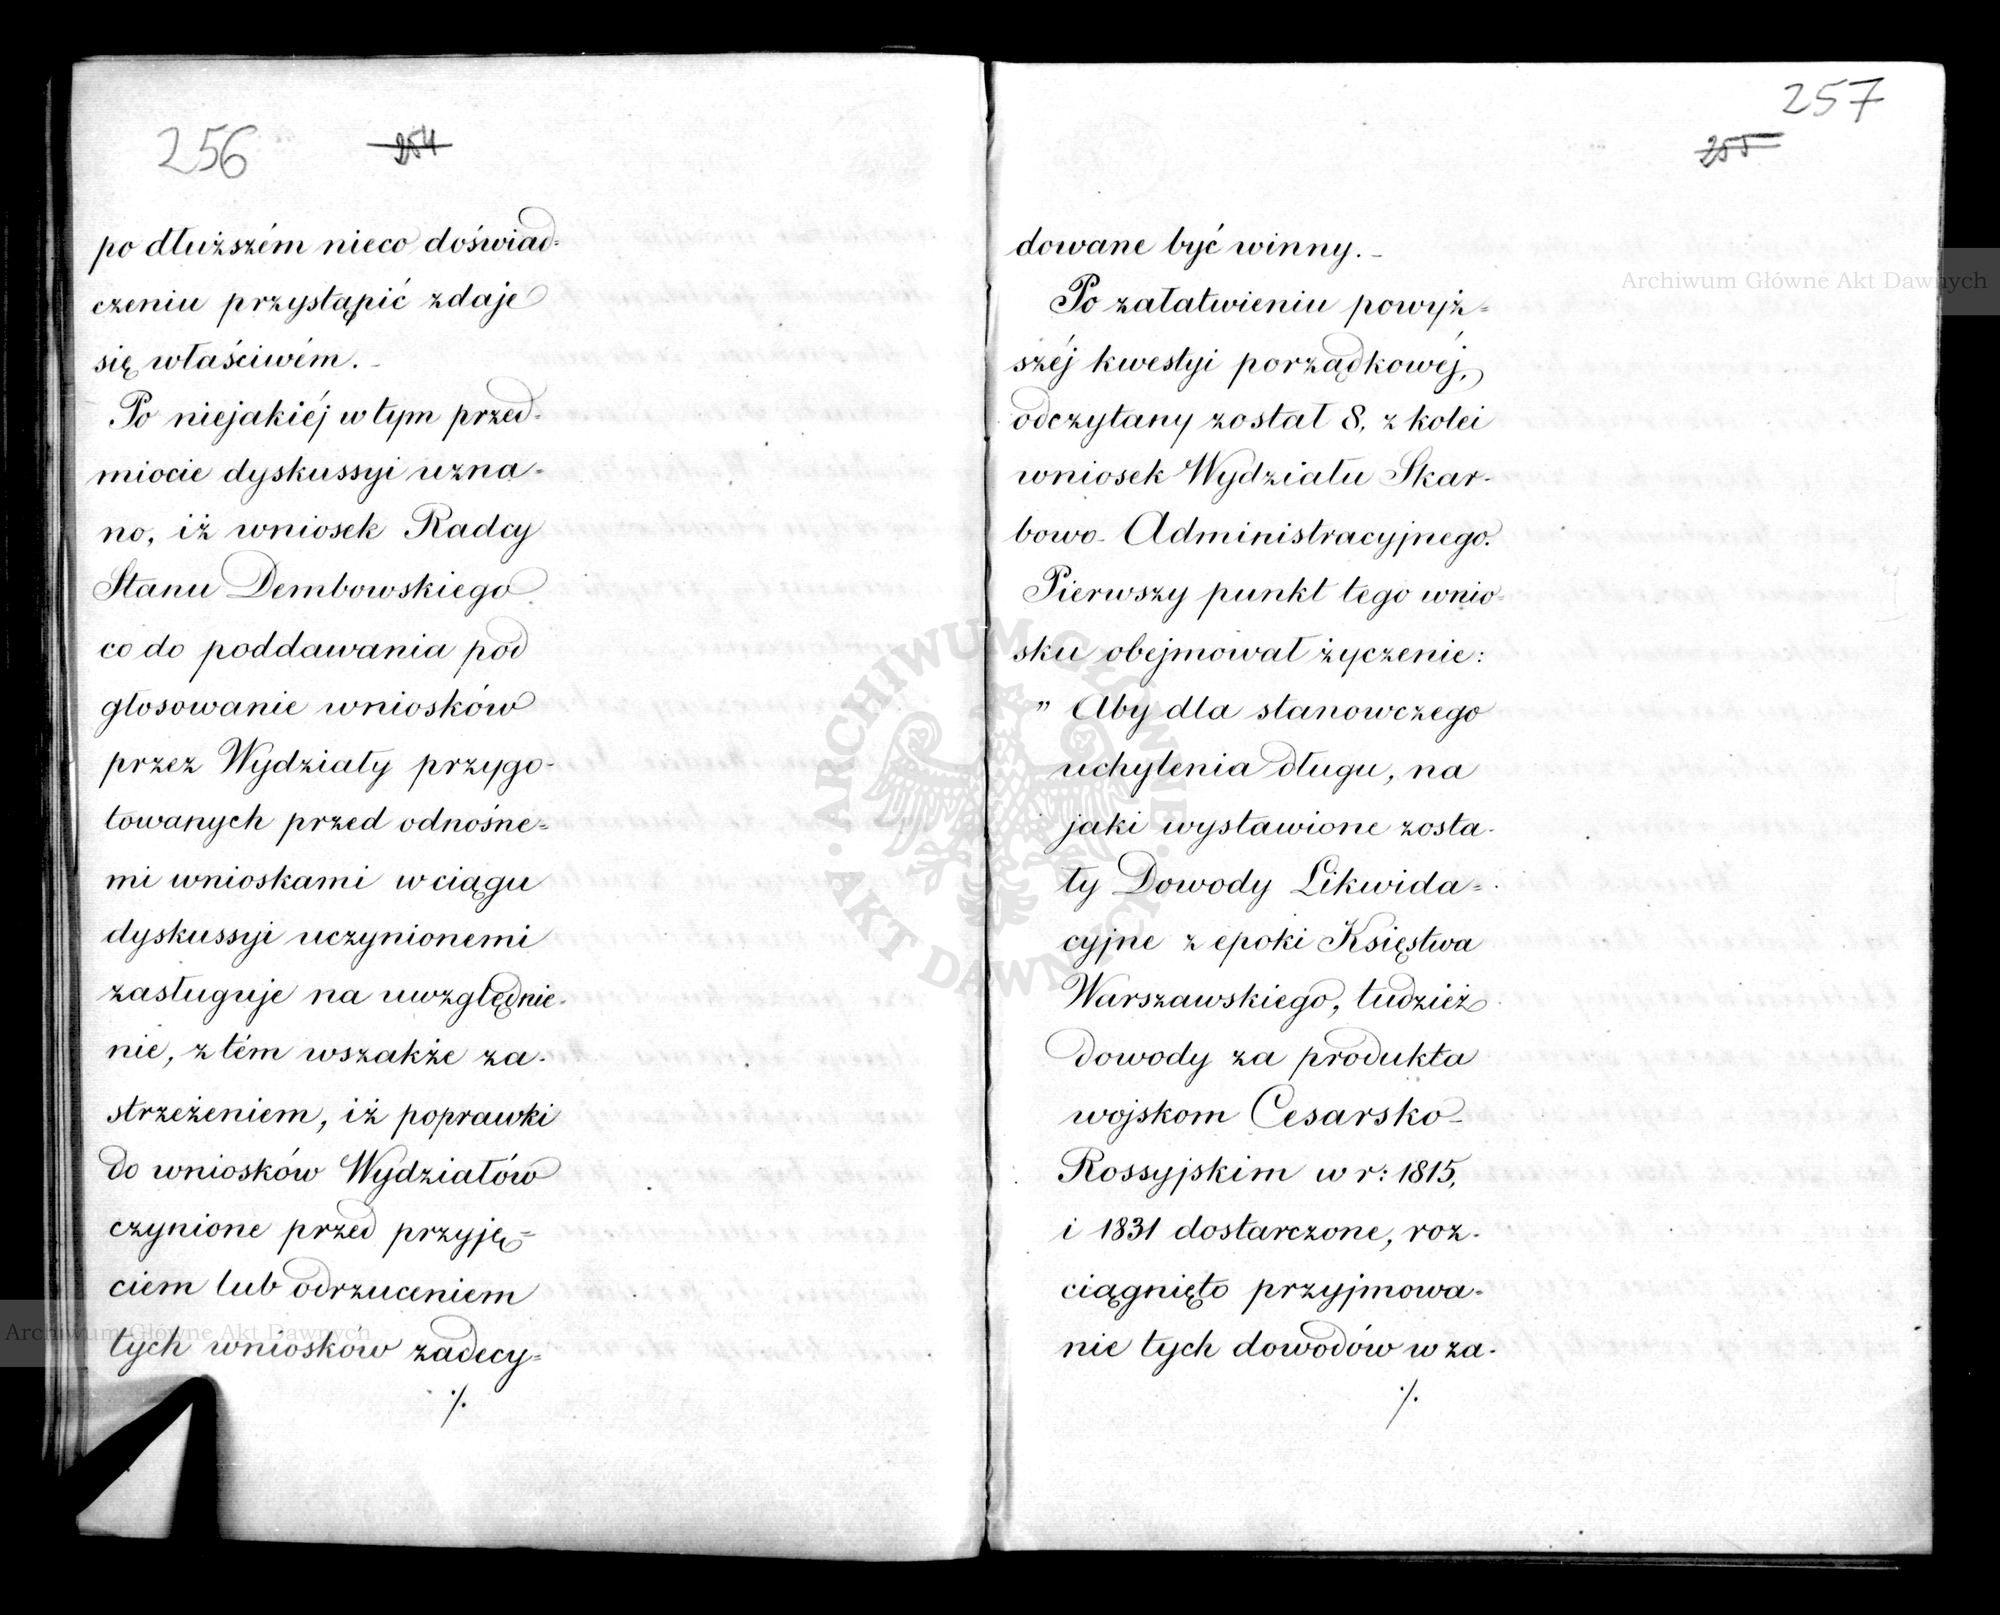 256
254
po dłuższém nieco doświad-
czeniu przystąpić zdaje
się właściwém. -
Po niejakiéj w tym przed-
miocie dyskussyi uzna-
no, iż wniosek Radcy
Stanu Dembowskiego
co do poddawania pod
głosowanie wniosków
przez Wydziały przygo-
towanych przed odnośne=
mi wnioskami w ciągu
dyskussyi uczynionemi
zasługuje na uwzględnie-
nie, z tém wszakże za-
strzeżeniem, iż poprawki
do wniosków Wydziałów
czynione przed przyję=
ciem lub odrzuceniem
tych wniosków zadecy=
./.
257
255
dowane być winny. -
Po załatwieniu powyż=
széj kwestyi porządkowéj,
odczytany został 8. z kolei
wniosek Wydziału Skar-
bowo-Administracyjnego.
Pierwszy punkt tego wnio-
sku obejmował życzenie:
„ Aby dla stanowczego
uchylenia długu, na
jaki wystawione zosta-
ły Dowody Likwida=
cyjne z epoki Księstwa
Warszawskiego, tudzież
dowody za produkta
wojskom Cesarsko-
Rossyjskim w r: 1815,
i 1831 dostarczone, roz-
ciągnięto przyjmowa-
nie tych dowodów w za-
./.
Archiwum Główne Akt Dawnych
Archiwum Główne Akt Dawnych
· ARCHIWUM GŁÓWNE · AKT DAWNYCH